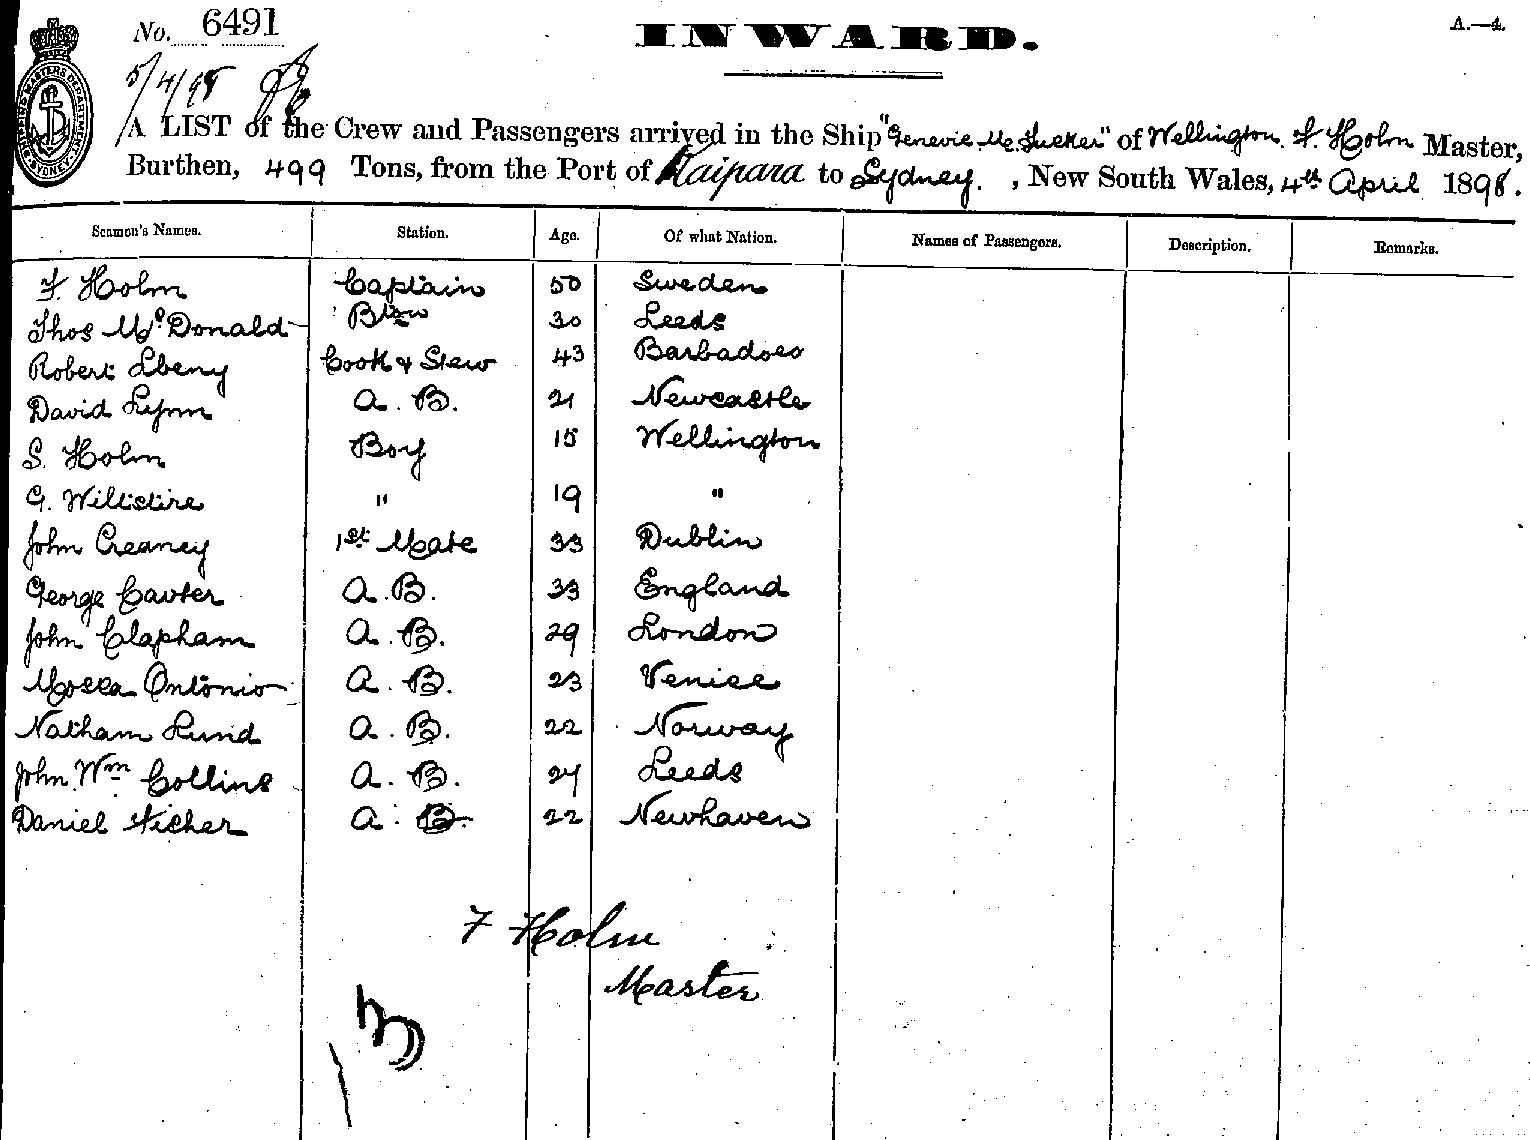 No. 6491
INWARD.
A.—4.
5/4/98
A LIST of the Crew and Passengers arrived in the Ship "Genevie M. Tucker" of Wellington. F. Holm Master,
Burthen, 499 Tons, from the Port of Kaipara to Sydney. , New South Wales, 4th April 1898.
Seamen's Names. Station. Age. Of what Nation. Names of Passengers. Description. Remarks.
F. Holm Captain 50 Sweden
Thos McDonald 30 Leeds
Robert Cook & Stew 43 Barbadoes
David Lynn A. B. 21 Newcastle
S. Holm Boy 15 Wellington
G. Wiltshire " 19 "
John Creaney 1st Mate 33 Dublin
George Carter A. B. 33 England
John Clapham A. B. 29 London
Mosca Antonio A. B. 23 Venice
Natham Lund A. B. 22 Norway
John Wm Collins A. B. 24 Leeds
Daniel A. B. 22 Newhaven
F Holm
Master
13